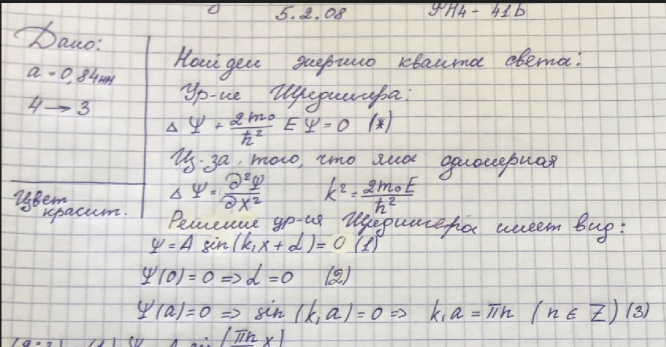 5.2.08 ФН4-41Б
Дано:
a = 0,84нм
4 → 3
Цвет
красит.
Найдем энергию кванта света:
Ур-ие Шредингера:
Δ Ψ + 2m₀/ħ² E Ψ = 0 (*)
Из-за того, что яма одномерная
Δ Ψ = ∂²Ψ/∂x² k² = 2m₀E/ħ²
Решение ур-ия Шредингера имеет вид:
Ψ = A sin(k₁x + α) = 0 (1)
Ψ(0) = 0 => α = 0 (2)
Ψ(a) = 0 => sin(k₁a) = 0 => k₁a = πn (n ∈ Z) (3)